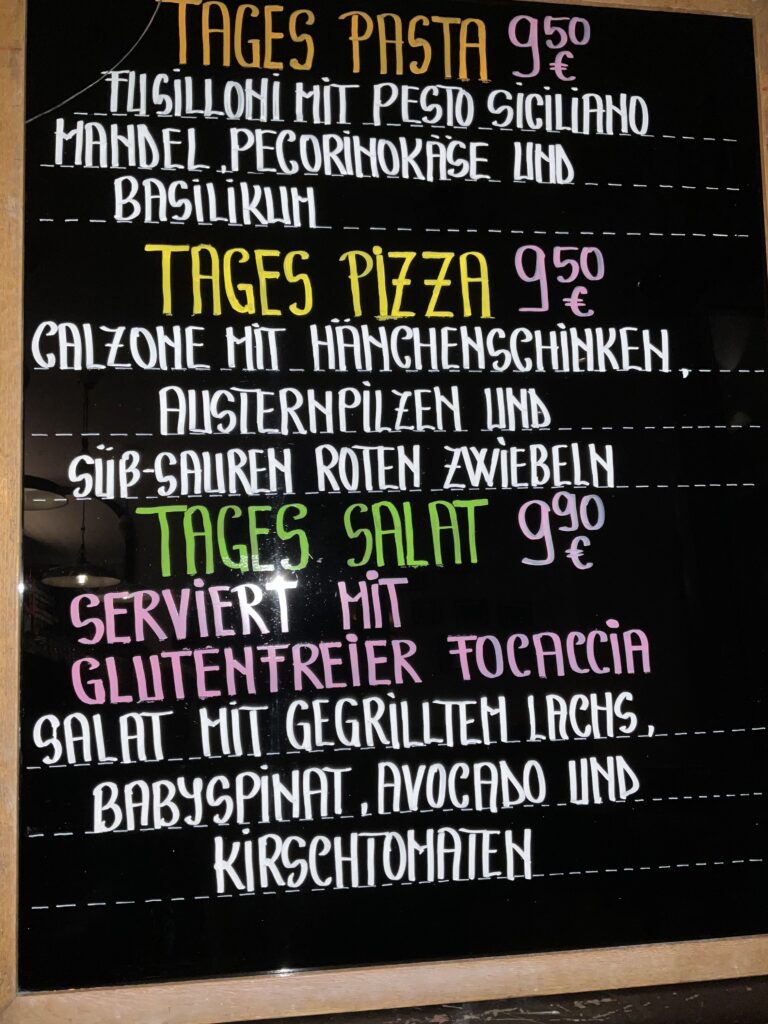 TAGES PASTA 950 €
FUSILLONI MIT PESTO SICILIANO
MANDEL, PECORINOKÄSE UND
BASILIKUM
TAGES PIZZA 950 €
CALZONE MIT HÄNCHENSCHINKEN,
AUSTERNPILZEN UND
SÜß-SAUREN ROTEN ZWIEBELN
TAGES SALAT 990 €
SERVIERT MIT
GLUTENFREIER FOCACCIA
SALAT MIT GEGRILLTEM LACHS,
BABYSPINAT, AVOCADO UND
KIRSCHTOMATEN